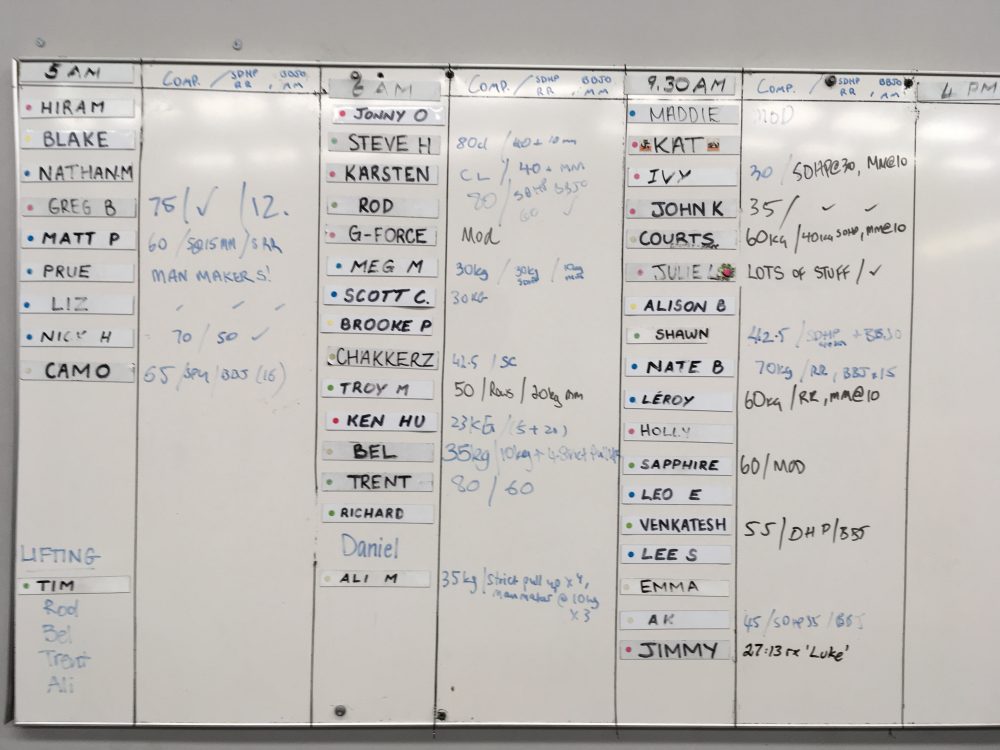 5 AM
COMP. / SDHP RR , BBJO MM
HIRAM
BLAKE
NATHAN.M
GREG B 75 / ✓ / 12.
MATT P 60 /
PRUE MAN MAKERS!
LIZ
NICK H 70 / 50 ✓
CAMO
LIFTING
TIM
Rod
Bel
Trent
Ali
8 AM
COMP. / SDHP RR , BBJO MM
JONNY O
STEVE H
KARSTEN CL / 40 + MM
ROD
G-FORCE Mod
MEG M 30kg / 30kg / 10kg
SCOTT C. 30KG
BROOKE P
CHAKKERZ 42.5 / SC
TROY M 50 / Rows / 20kg mm
KEN HU 23KG / (5 + 20)
BEL 35kg / 10kg + 4 Strict
TRENT 80 / 60
RICHARD
Daniel
ALI M 35kg / Strict pull up x 4,
@ 10kg
x 3
9.30AM
COMP. / SDHP RR , BBJO MM
MADDIE
KAT
IVY 30 / SDHP@30, MM@10
JOHN K 35 / ✓ ✓
COURTS 60kg / 40kg SDHP, MM@10
JULIE L LOTS OF STUFF / ✓
ALISON B
SHAWN 42.5 / SDHP + BBJO
NATE B 70kg / RR, BBJ x 15
LÉROY 60kg / RR, MM@10
HOLLY
SAPPHIRE 60 / MOD
LEO E
VENKATESH 55 / DHP / BBJ
LEE S
EMMA
AK 45 / SDHP35 / BBJ
JIMMY 27:13 rx 'Luke'
4 PM